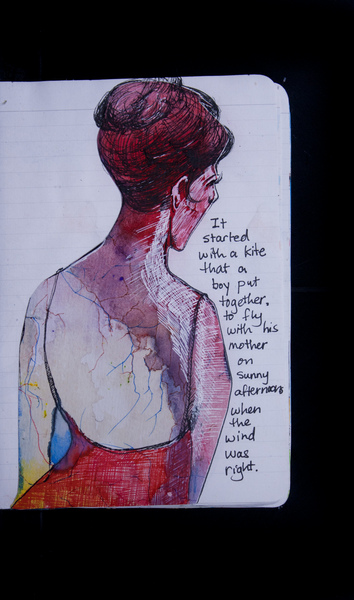 It
started
with a kite
that a
boy put
together,
to fly
with his
mother
on
sunny
afternoons
when
the
wind
was
right.